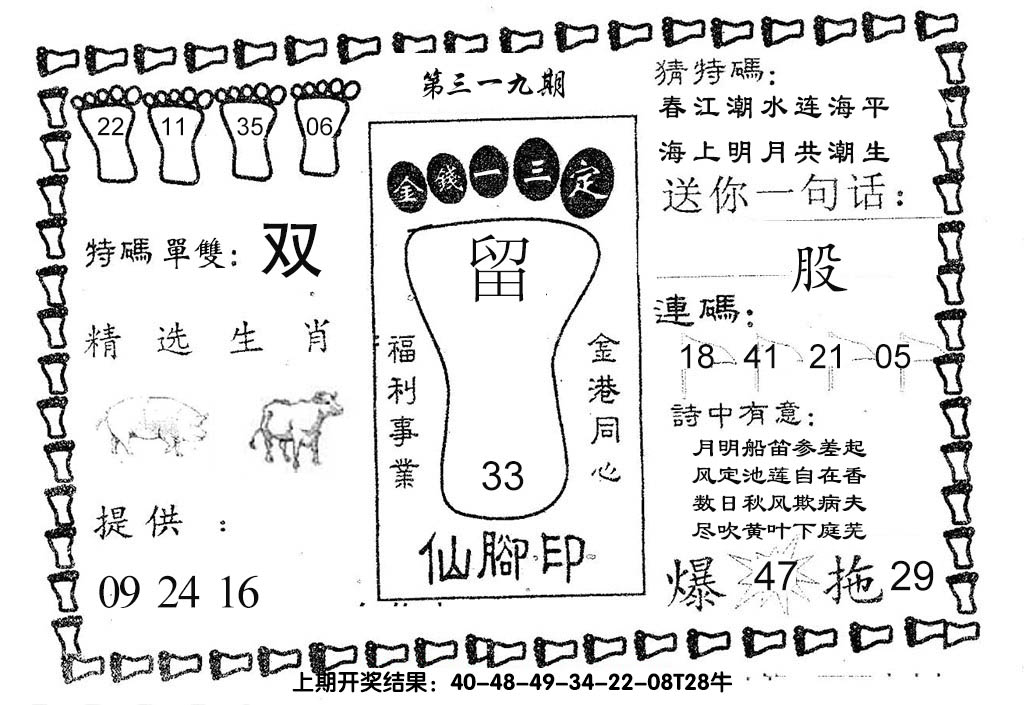 第三一九期
22 11 35 06
特碼單雙：双
精选生肖
提供：
09 24 16
金錢一三定
留
福利事業
金港同心
33
仙腳印
猜特碼：
春江潮水连海平
海上明月共潮生
送你一句话：
股
連碼：
18 41 21 05
詩中有意：
月明船笛参差起
风定池莲自在香
数日秋风欺病夫
尽吹黄叶下庭芜
爆 47 拖 29
上期开奖结果：40-48-49-34-22-08T28牛